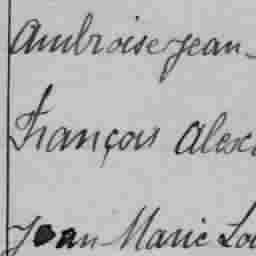 Ambroise Jean-
François Alex
Jean Marie Lo